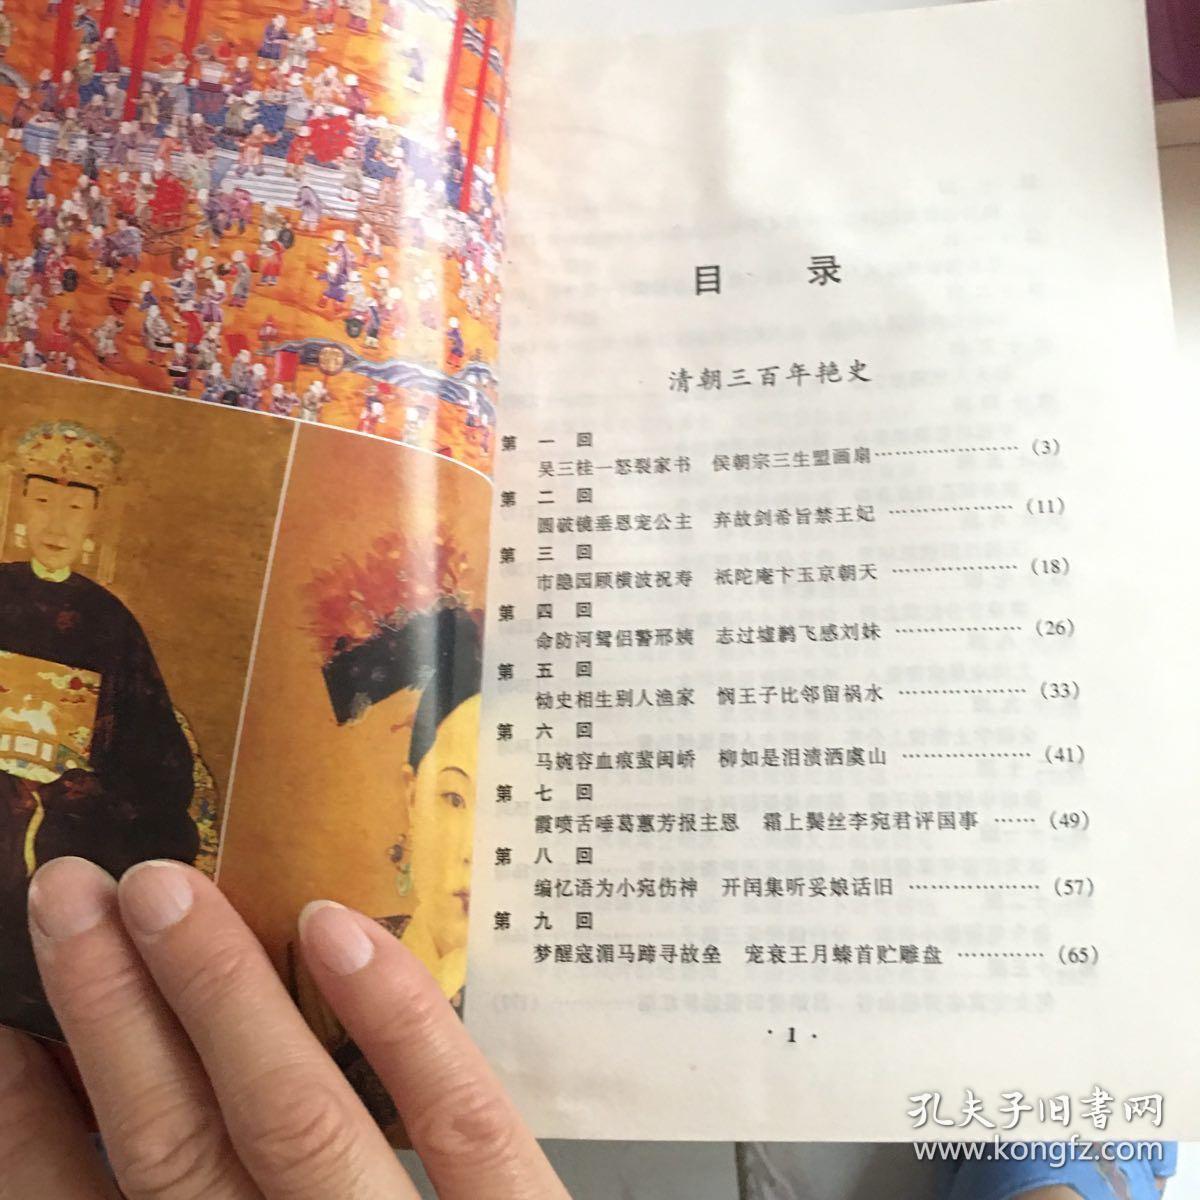 目 录
清朝三百年艳史
第一回
吴三桂一怒裂家书 侯朝宗三生盟画扇…………………(3)
第二回
圆破镜垂恩宠公主 弃故剑希旨禁王妃………………(11)
第三回
市隐园顾横波祝寿 祇陀庵卞玉京朝天………………(18)
第四回
命防河鸳侣警邢姨 志过墟鹣飞感刘妹………………(26)
第五回
恸史相生别人渔家 悯王子比邻留祸水………………(33)
第六回
马婉容血痕蜚闽峤 柳如是泪渍洒虞山………………(41)
第七回
霞喷舌唾葛蕙芳报主恩 霜上鬓丝李宛君评国事……(49)
第八回
编忆语为小宛伤神 开闰集听妥娘话旧………………(57)
第九回
梦醒寇湄马蹄寻故垒 宠衰王月螓首贮雕盘…………(65)
·1·
孔夫子旧書网
www.kongfz.com